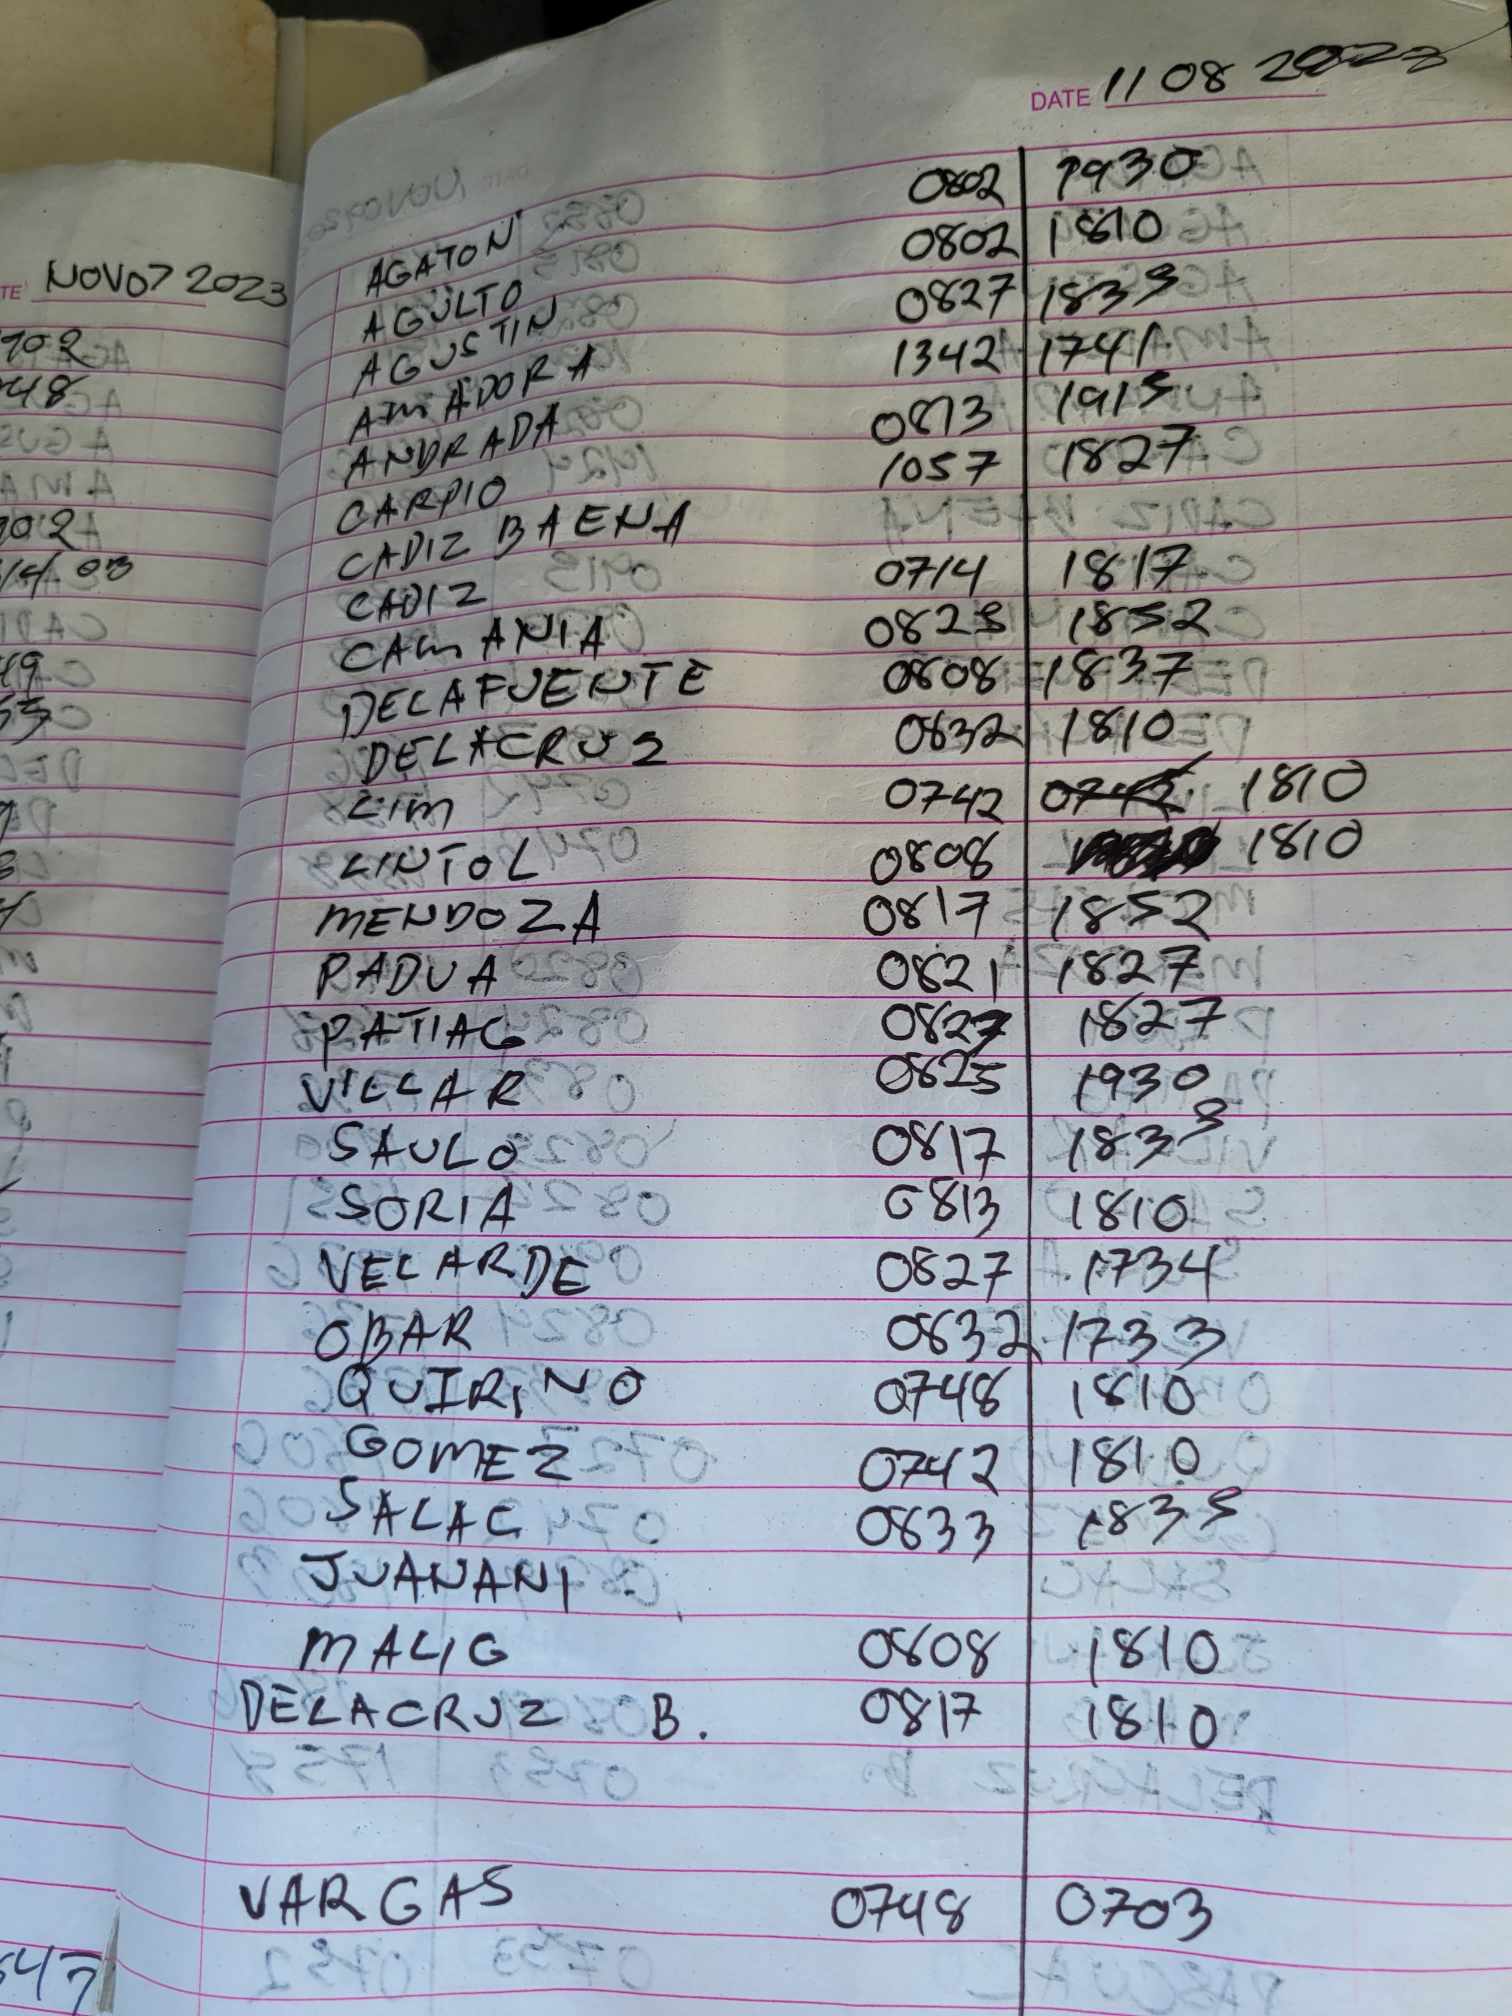 DATE 11 08 2023
AGATON 0802 1930
AGULTO 0802 1810
AGUSTIN 0827 1833
AMADORA 1342 1741
ANDRADA 0813 1915
CARPIO 1057 1827
CADIZ BAENA
CADIZ 0714 1817
CAMANIA 0823 1852
DELAFUENTE 0808 1837
DELACRUZ 0832 1810
LIM 0742 0742 1810
LINTOL 0808 1810
MENDOZA 0817 1852
PADUA 0821 1827
PATIAG 0827 1827
VILLAR 0825 1930
SAULO 0817 1833
SORIA 0813 1810
VELARDE 0827 1734
OBAR 0832 1733
QUIRINO 0748 1810
GOMEZ 0742 1810
SALAC 0833 1833
JUANANI
MALIG 0808 1810
DELACRUZ B. 0817 1810
VARGAS 0748 0703
NOV 07 2023